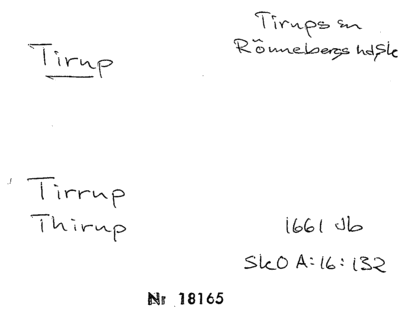 Tirup
Tirups sn
Rönnebergs hd, Sk
Tirrup
Thirup
1661 Jb
SkO A:16:132
Nr 18165